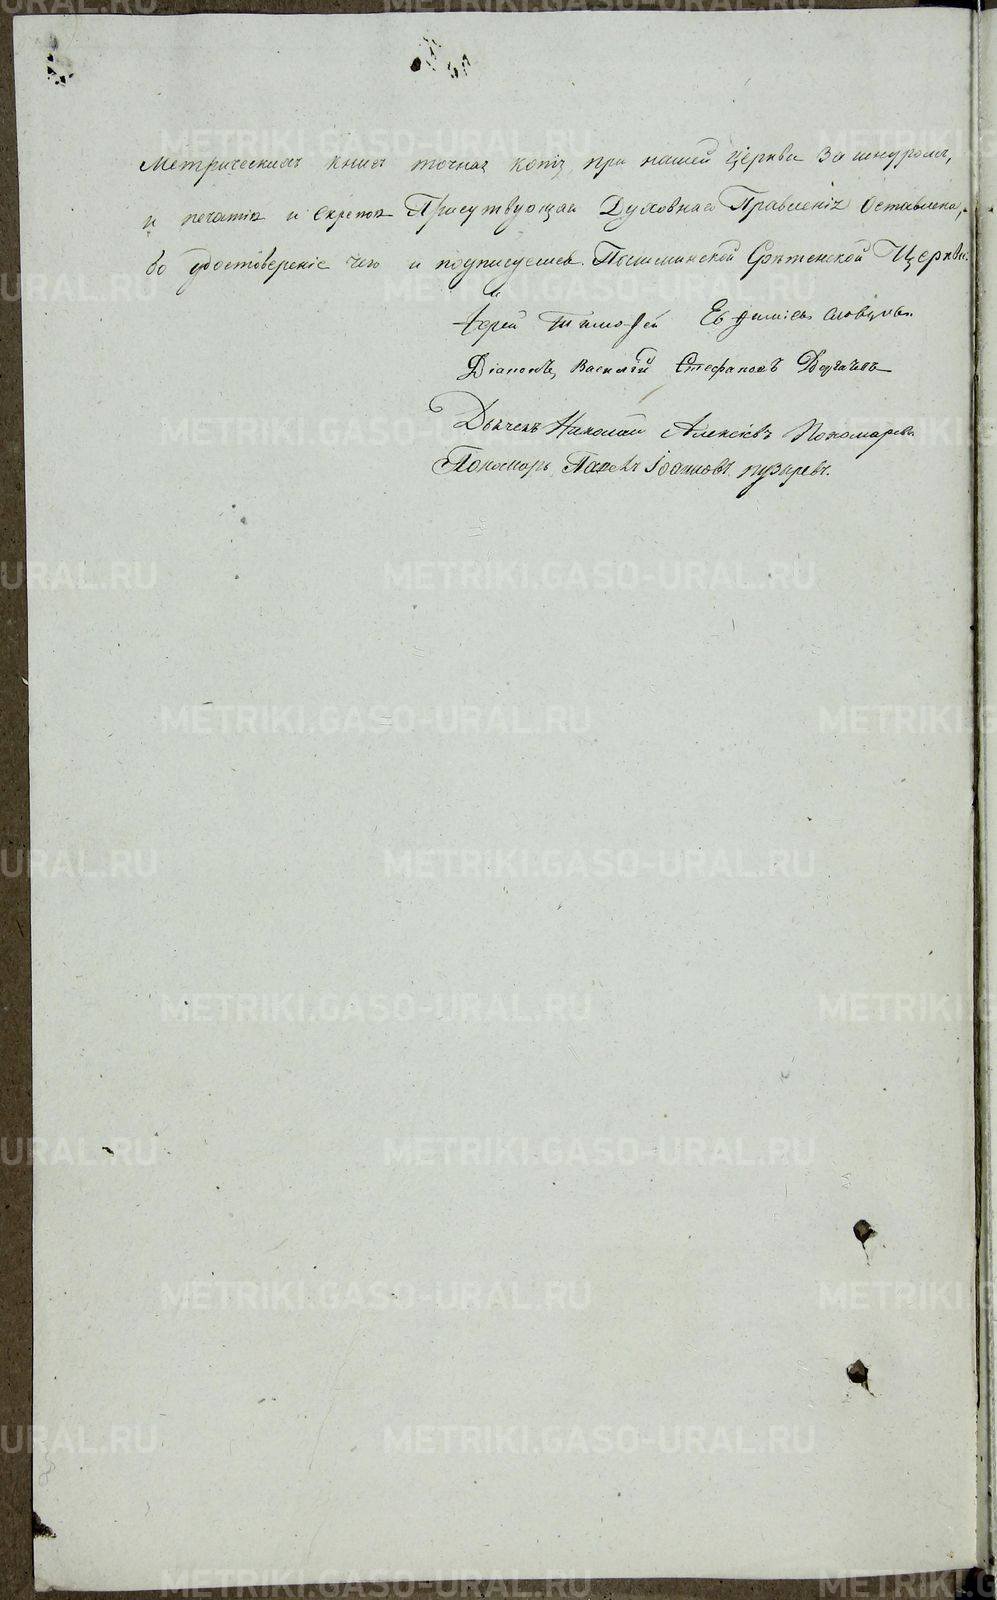 Метрическихъ книгъ точная копія при нашей церкви За шнуромъ,
и печатію и скрепою Присутвующаго Духовнаго Правленія Оставлена,
во удостовереніе чего и подписуемся. Пышминской Срѣтенской Церкви
Іерей Тимофей Евфиміевъ Словцовъ.
Діаконъ Василій Стефановъ
Дьячекъ Николай Алексіевъ Пономаревъ
Пономарь Павелъ Іоанновъ пузыревъ.
METRIKI.GASO-URAL.RU